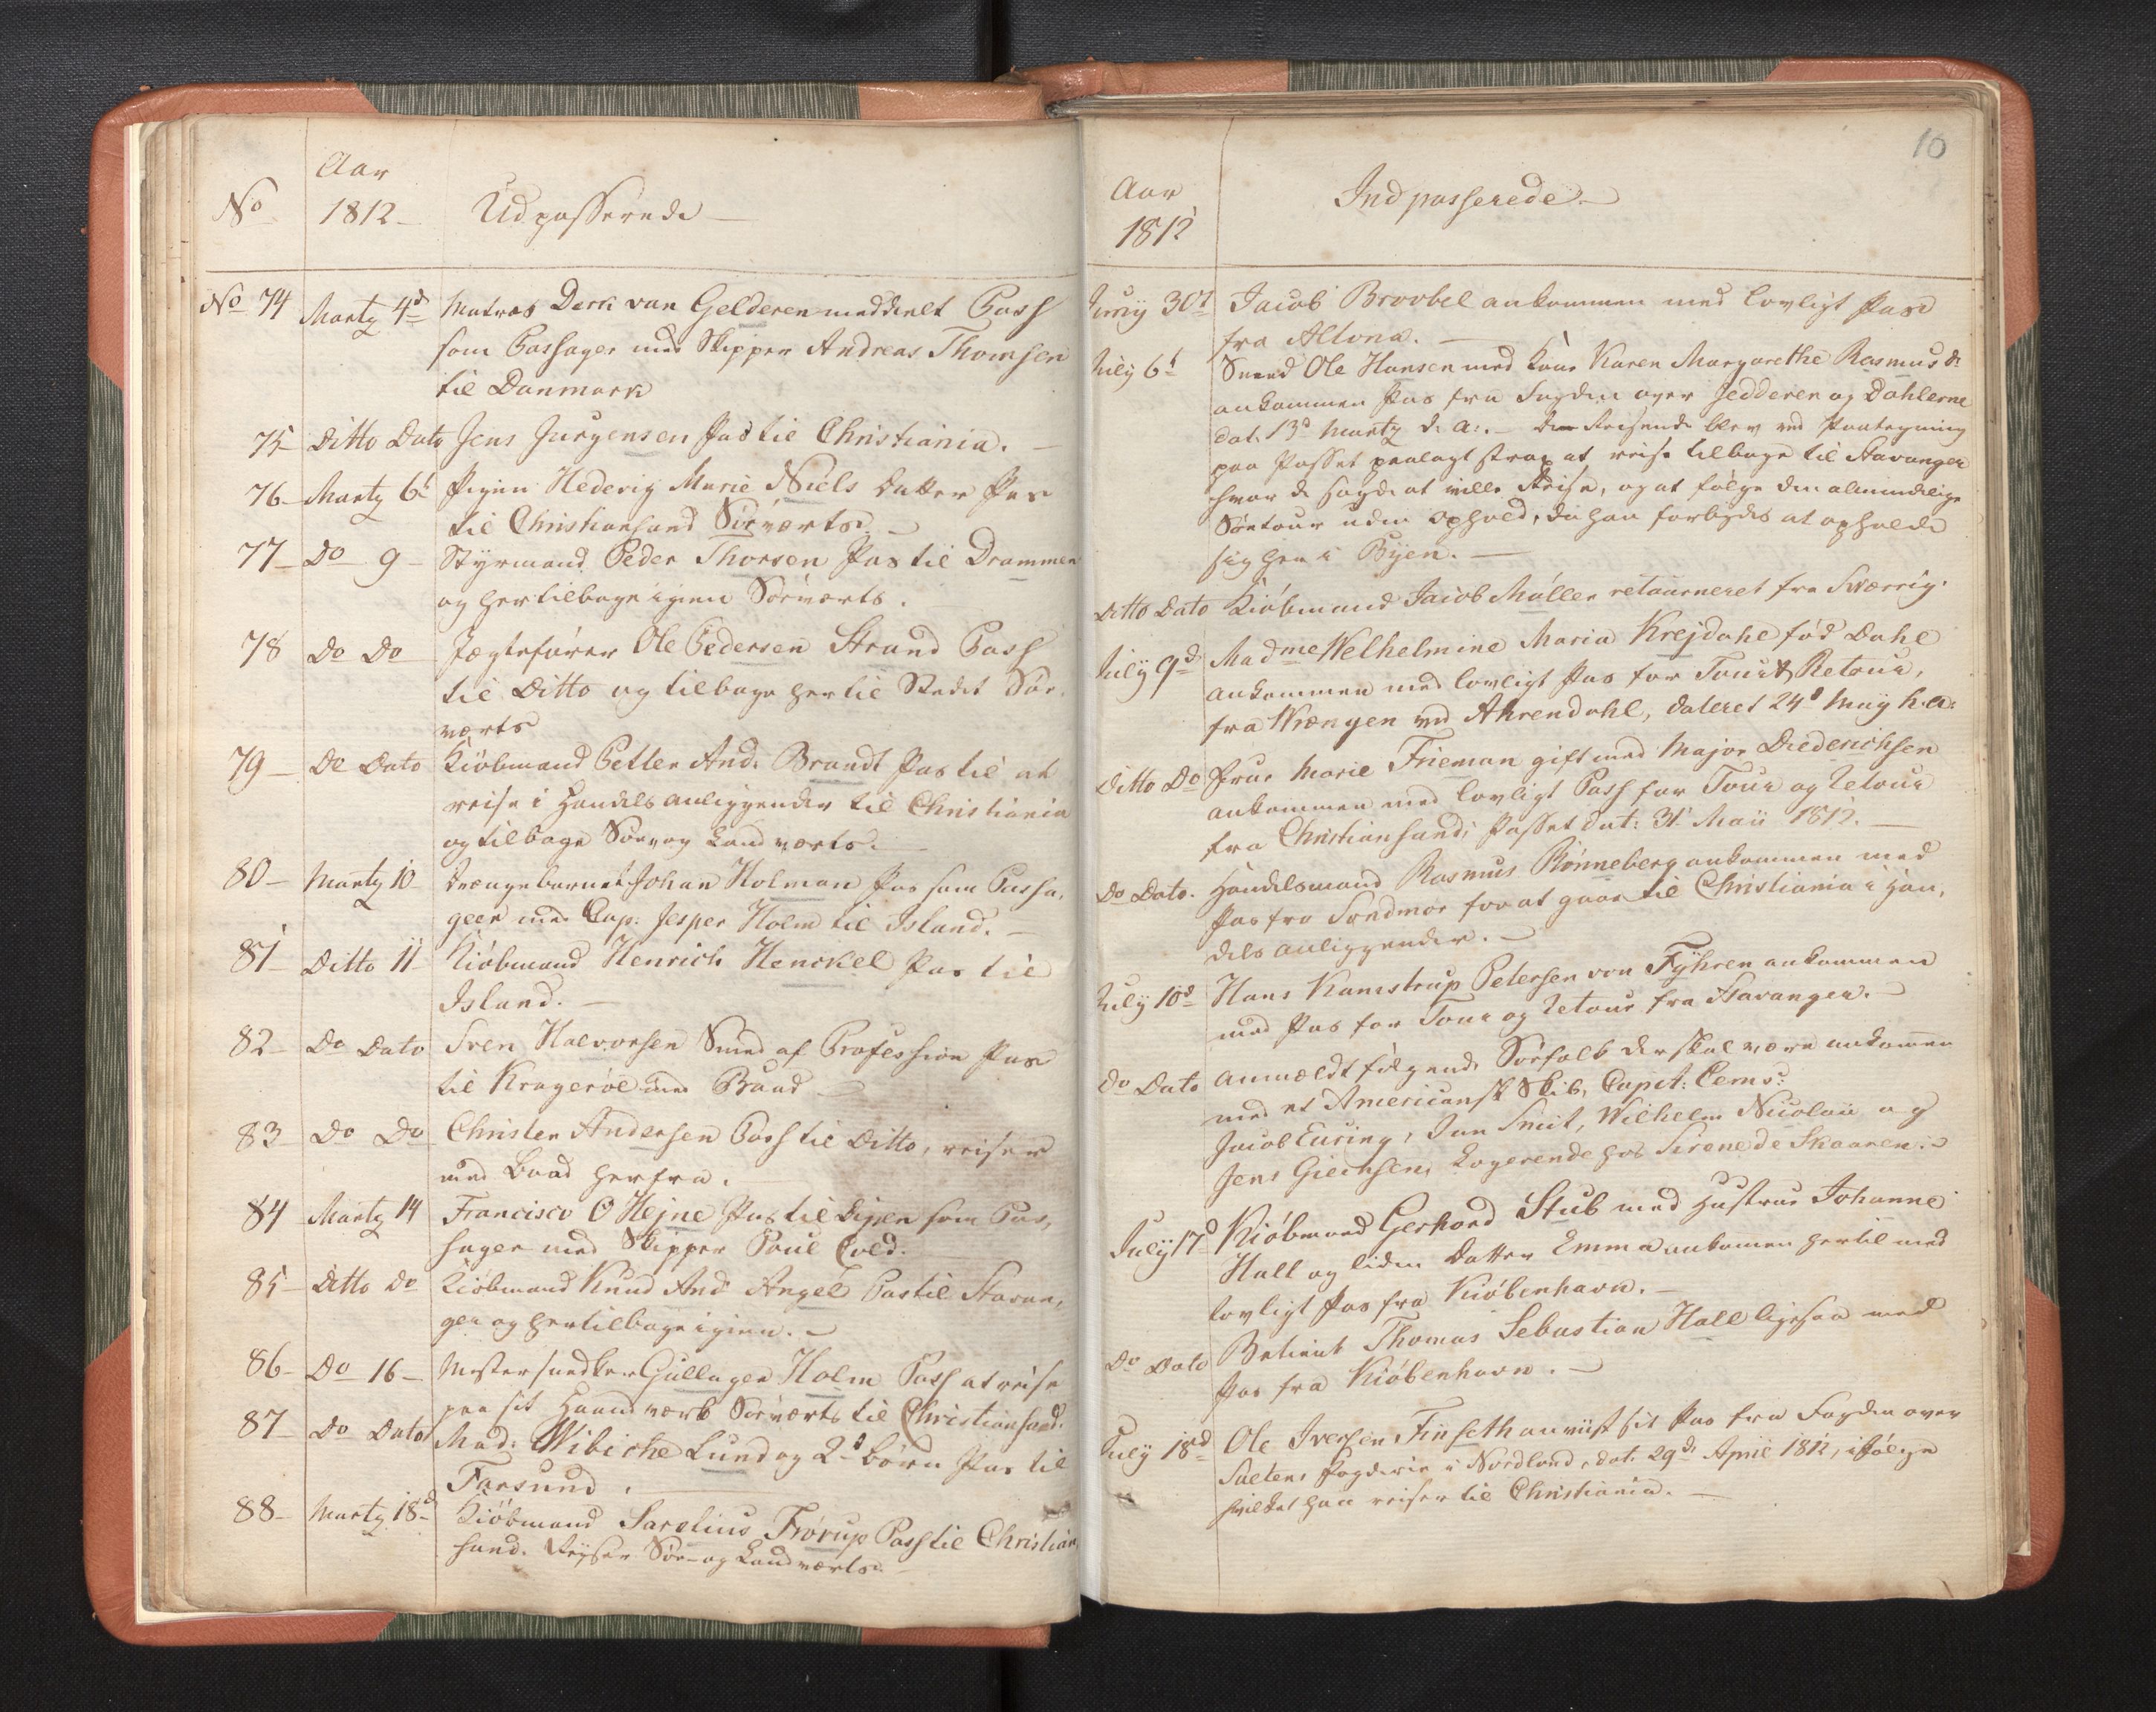 Aar
No 1812 Udpasserede
No 74 Martz 4d Matros Derk van Gelderen meddeelt Pass
som Passager med Skipper Andreas Thomsen
til Danmark
75 Ditto Dato Jens Jurgensen Pas til Christiania.
76 Martz 6t Pigen Hedevig Marie Niels Datter Pas
til Christiansand Söeværts.
77 Do 9 Styrmand Peder Thorsen Pas til Drammen
og her tilbage igien Söeværts.
78 Do Do Jægtefører Ole Pedersen Strand Pass
til Ditto og tilbage her til Stedet Söe-
værts
79 Do Dato Kiöbmand Petter And: Brandt Pas til at
reise i Handels anliggender til Christiania
og tilbage Söe og Landværts.
80 Martz 10 Drængebarnet Johan Holman Pas som Passa-
geer med Cap: Jesper Holm til Island.
81 Ditto 11 Kiöbmand Henrich Henckel Pas til
Island.
82 Do Dato Sven Halvorsen Smed af Profession Pas
til Kragerøe med Baad
83 Do Do Christen Andersen Pass til Ditto, reiser
med Baad herfra.
84 Martz 14 Francisco O Hejne Pas til Byen som Pas-
sager med Skipper Poul Cold.
85 Ditto Do Kiöbmand Knud And Angel Pas til Stavan-
ger og her tilbage igien.
86 Do 16 Mester Snedker Gullager Holm Pass at reise
paa sit Haandværk Söeværts til Christiansand.
87 Do Dato Mad: Wibiche Lund og 2de Börn Pas til
Farsund.
88 Martz 18d Kiöbmand Sarelius Frørup Pass til Christian-
sand. Reyser Söe- og Landværts.
10
Aar
1812 Indpasserede
Juny 30t Jacob Broobel ankommen med lovligt Pas
fra Altona.
July 6t Smed Ole Hansen med Kone Karen Margarethe Rasmusdr
ankommen Pas fra Fogden over Jedderen og Dahlerne
dat. 13d Martz d. A:. De Reisende blev ved Paategning
paa Passet paalagt strax at reise tilbage til Stavanger
hvor de sagde at ville Reise, og at følge den almindelige
Söetour uden Ophold, da han forbydes at opholde
sig her i Byen.
Ditto Dato Kiöbmand Jacob Möller retourneret fra Sværrig.
July 9d Madme Welhelmine Maria Krejdahl född Dahl
ankommen med lovligt Pas for Tour & Retour,
fra Wrængen ved Ahrendahl, dateret 24d May h.a:
Ditto Do Frue Marie Frieman gift med Major Diederichsen
ankommen med lovligt Pass for Tour og Retour
fra Christiansand, Passet dat: 31t Maii 1812.
Do Dato. Handelsmand Rasmus Rönneberg ankommen med
Pas fra Søndmör for at gaae til Christiania i Han-
dels anliggender.
July 10d Hans Kamstrup Petersen von Fÿhren ankommen
med Pas for Tour og Retour fra Stavanger.
Do Dato anmældt følgende Söefolk der skal være ankommen
med et Americansk Skib, Capit: Cems:
Jacob Eusing, Jan Smit, Wilhelm Nicolaii og
Jens Giechsen, Logerende hos Sirene de Skaanen.
July 17d Kiöbmand Gerhard Stub med Hustrue Johanne
Hall og liden Datter Emma ankomen hertil med
lovligt Pas fra Kiöbenhavn.
Do Dato Betient Thomas Sebastian Hall ligesaa med
Pas fra Kiöbenhavn.
July 18d Ole Iversen Finseth anviist sit Pas fra Fogden over
Saltens Fogderie i Nordland, dat. 29de April 1812, ifølge
hvilket han reiser til Christiania.